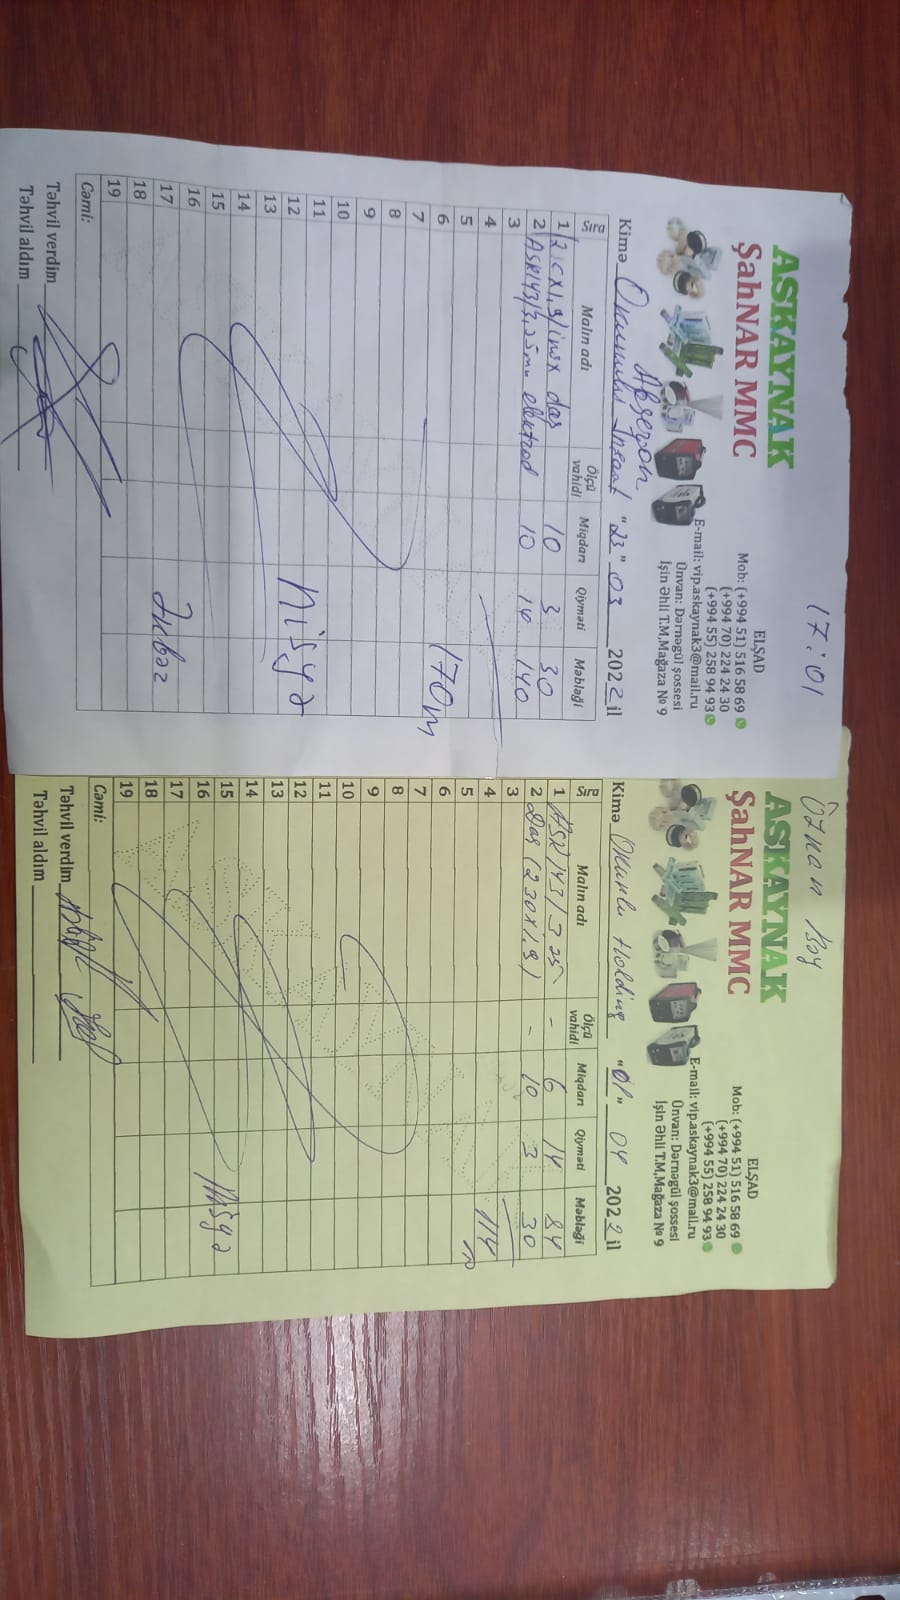 17:01
ASKAYNAK
ŞahNAR MMC
ELŞAD
Mob: (+994 51) 516 58 69
(+994 70) 224 24 30
(+994 55) 258 94 93
E-mail: vip.askaynak3@mail.ru
Ünvan: Dərnəgül şossesi
İşin Əhli T.M,Mağaza № 9
Abşeron
Kimə İnşaat "23" 03 2022 il
Sıra Malın adı Ölçü vahidi Miqdarı Qiyməti Məbləği
1 inox daş 10 3 30
2 ASK143/3,25mm elektrod 10 14 140
3
4
5
6 170m
7
8
9
10
11
12 Nisyə
13
14
15
16
17 Əkbər
18
19
Cəmi:
Təhvil verdim
Təhvil aldım
Öznan bəy
ASKAYNAK
ŞahNAR MMC
ELŞAD
Mob: (+994 51) 516 58 69
(+994 70) 224 24 30
(+994 55) 258 94 93
E-mail: vip.askaynak3@mail.ru
Ünvan: Dərnəgül şossesi
İşin Əhli T.M,Mağaza № 9
Kimə Okumlu Holding "01" 04 2022 il
Sıra Malın adı Ölçü vahidi Miqdarı Qiyməti Məbləği
1 ASK143/3.25 - 6 14 84
2 Daş (230x1.9) - 10 3 30
3
4 114
5 m
6
7
8
9
10
11
12
13
14
15 Nisyə
16
17
18
19
Cəmi:
Təhvil verdim
Təhvil aldım